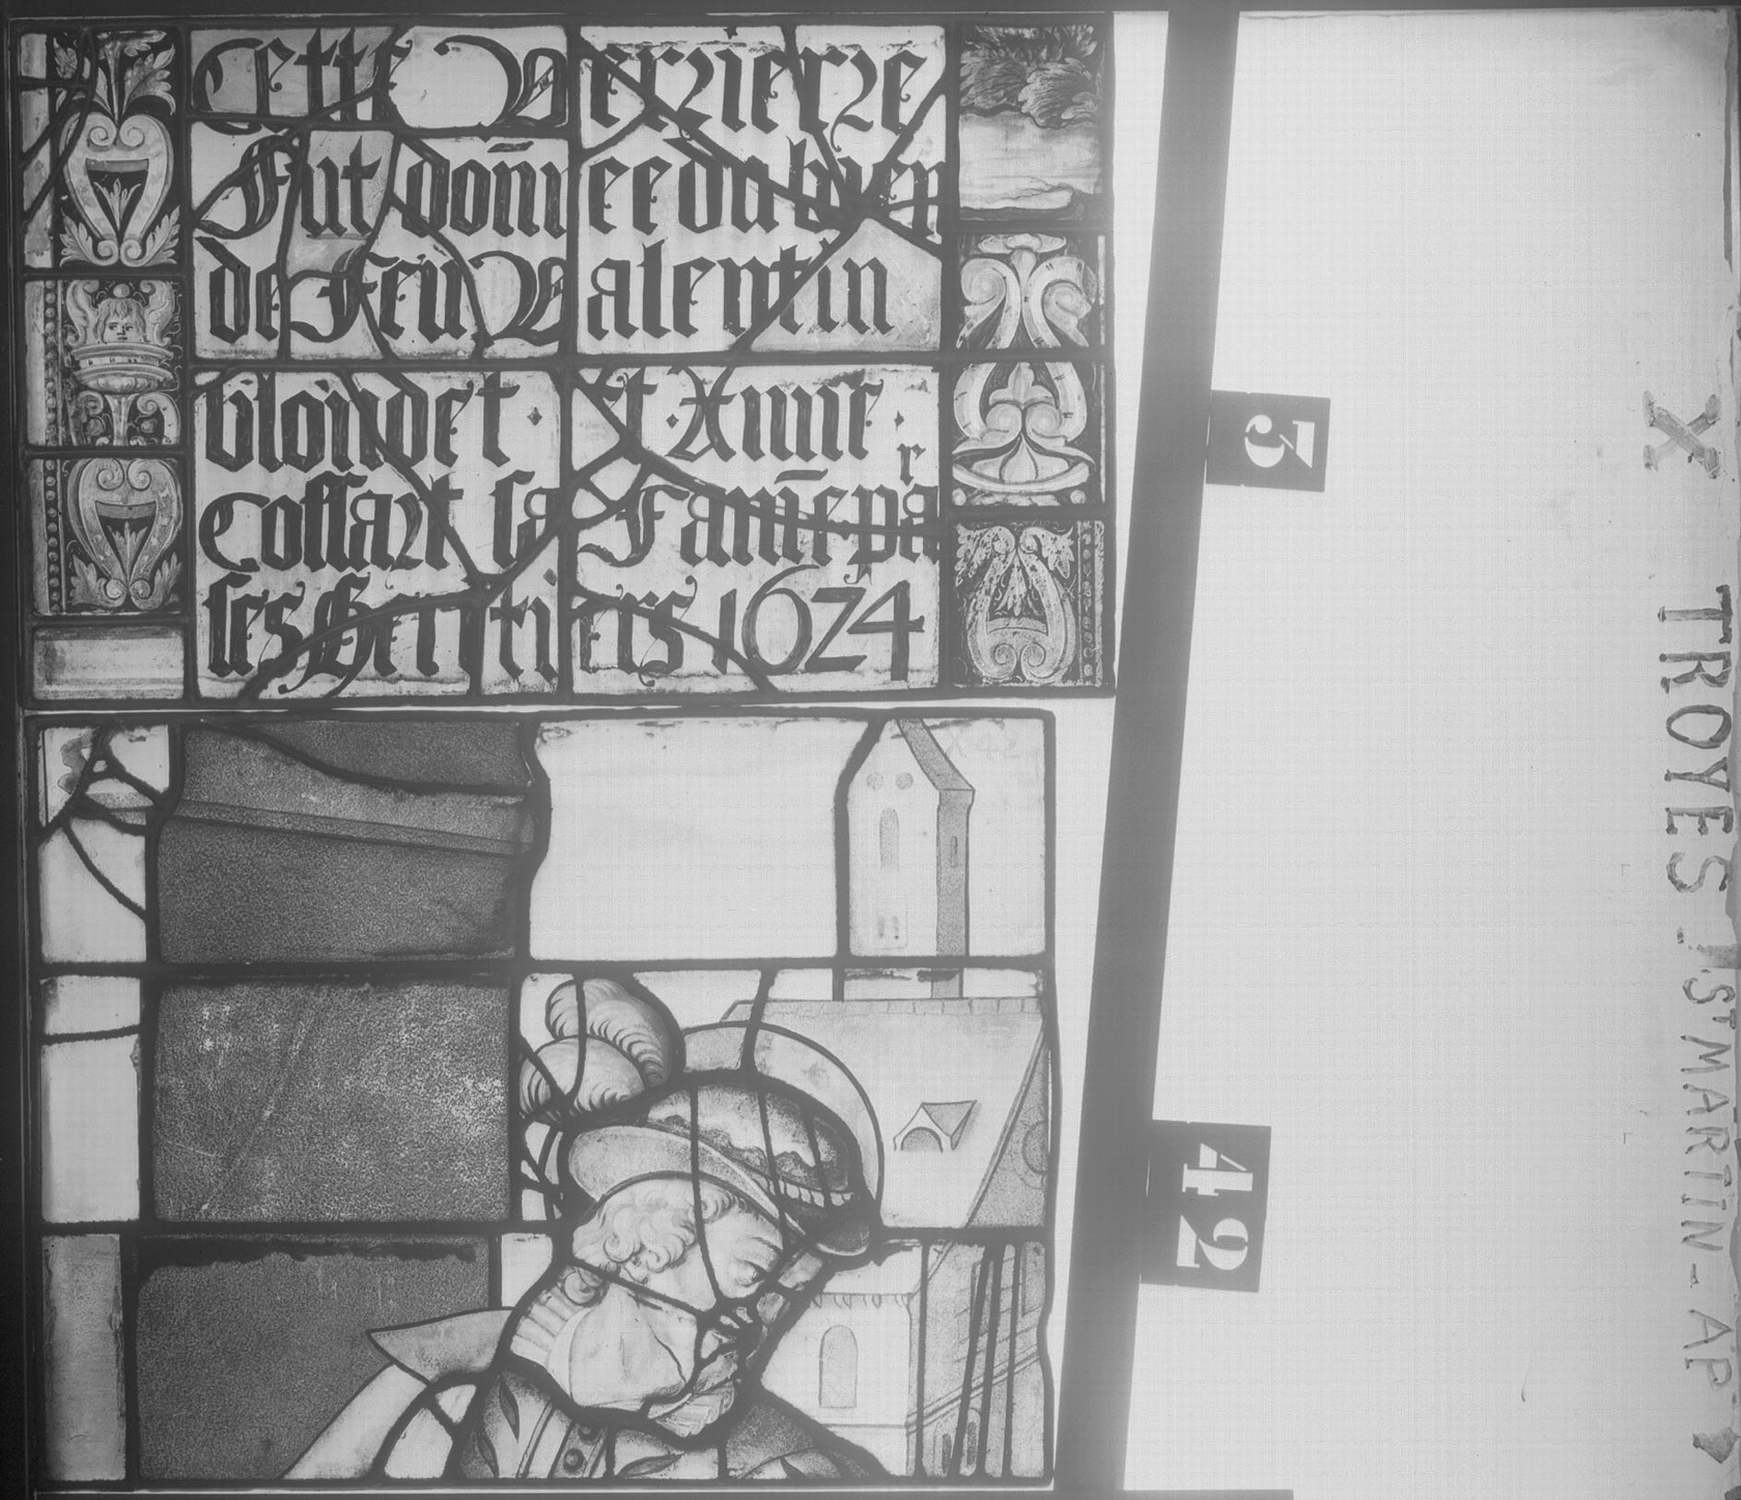 Cette Verriere
Fut doñee du bien
de Feu Valentin
blondet · et · Anne ·
Cossart sa Fam̃e par
ses Heritiers 1624
3
42
X
TROYES
St MARTIN - AP